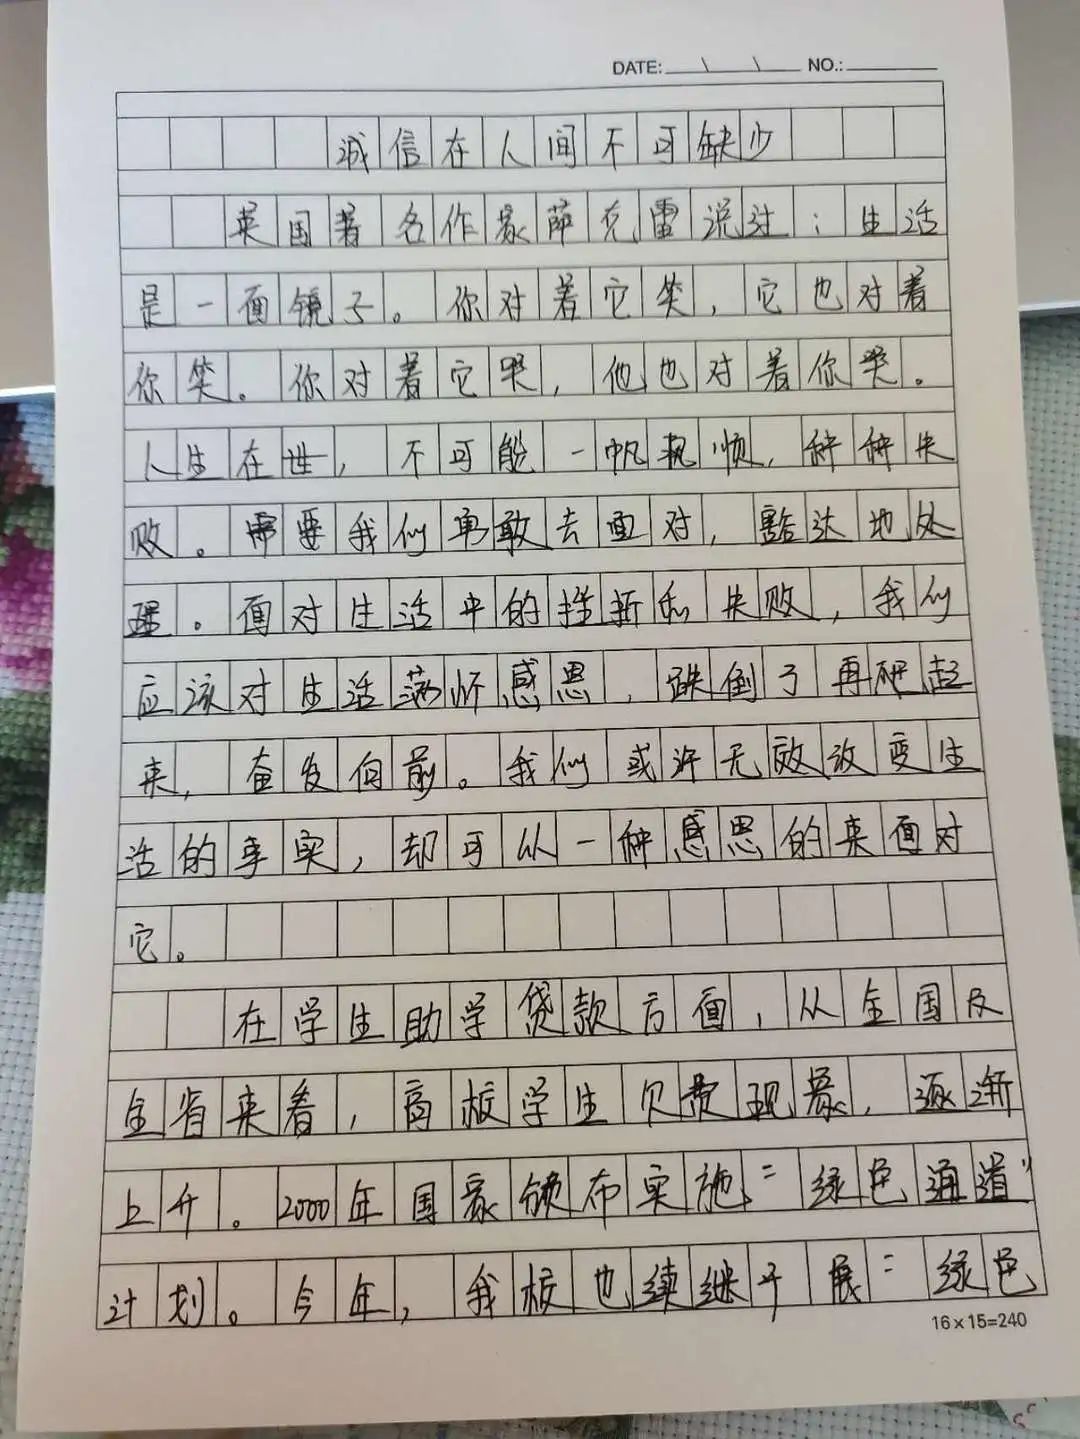 DATE: \ \ NO.:
诚信在人间不可缺少
英国著名作家萨克雷说过：生活
是一面镜子。你对着它笑，它也对着
你笑。你对着它哭，他也对着你哭。
人生在世，不可能一帆风顺，种种失
败。需要我们勇敢去面对，豁达地处
理。面对生活中的挫折和失败，我们
应该对生活满怀感恩，跌倒了再爬起
来，奋发向前。我们或许无效改变生
活的事实，却可从一种感恩的来面对
它。
在学生助学贷款方面，从全国及
全省来看，高校学生欠费现象，逐渐
上升。2000年国家颁布实施“绿色通道”
计划。今年，我校也续继于展“绿色
16×15=240